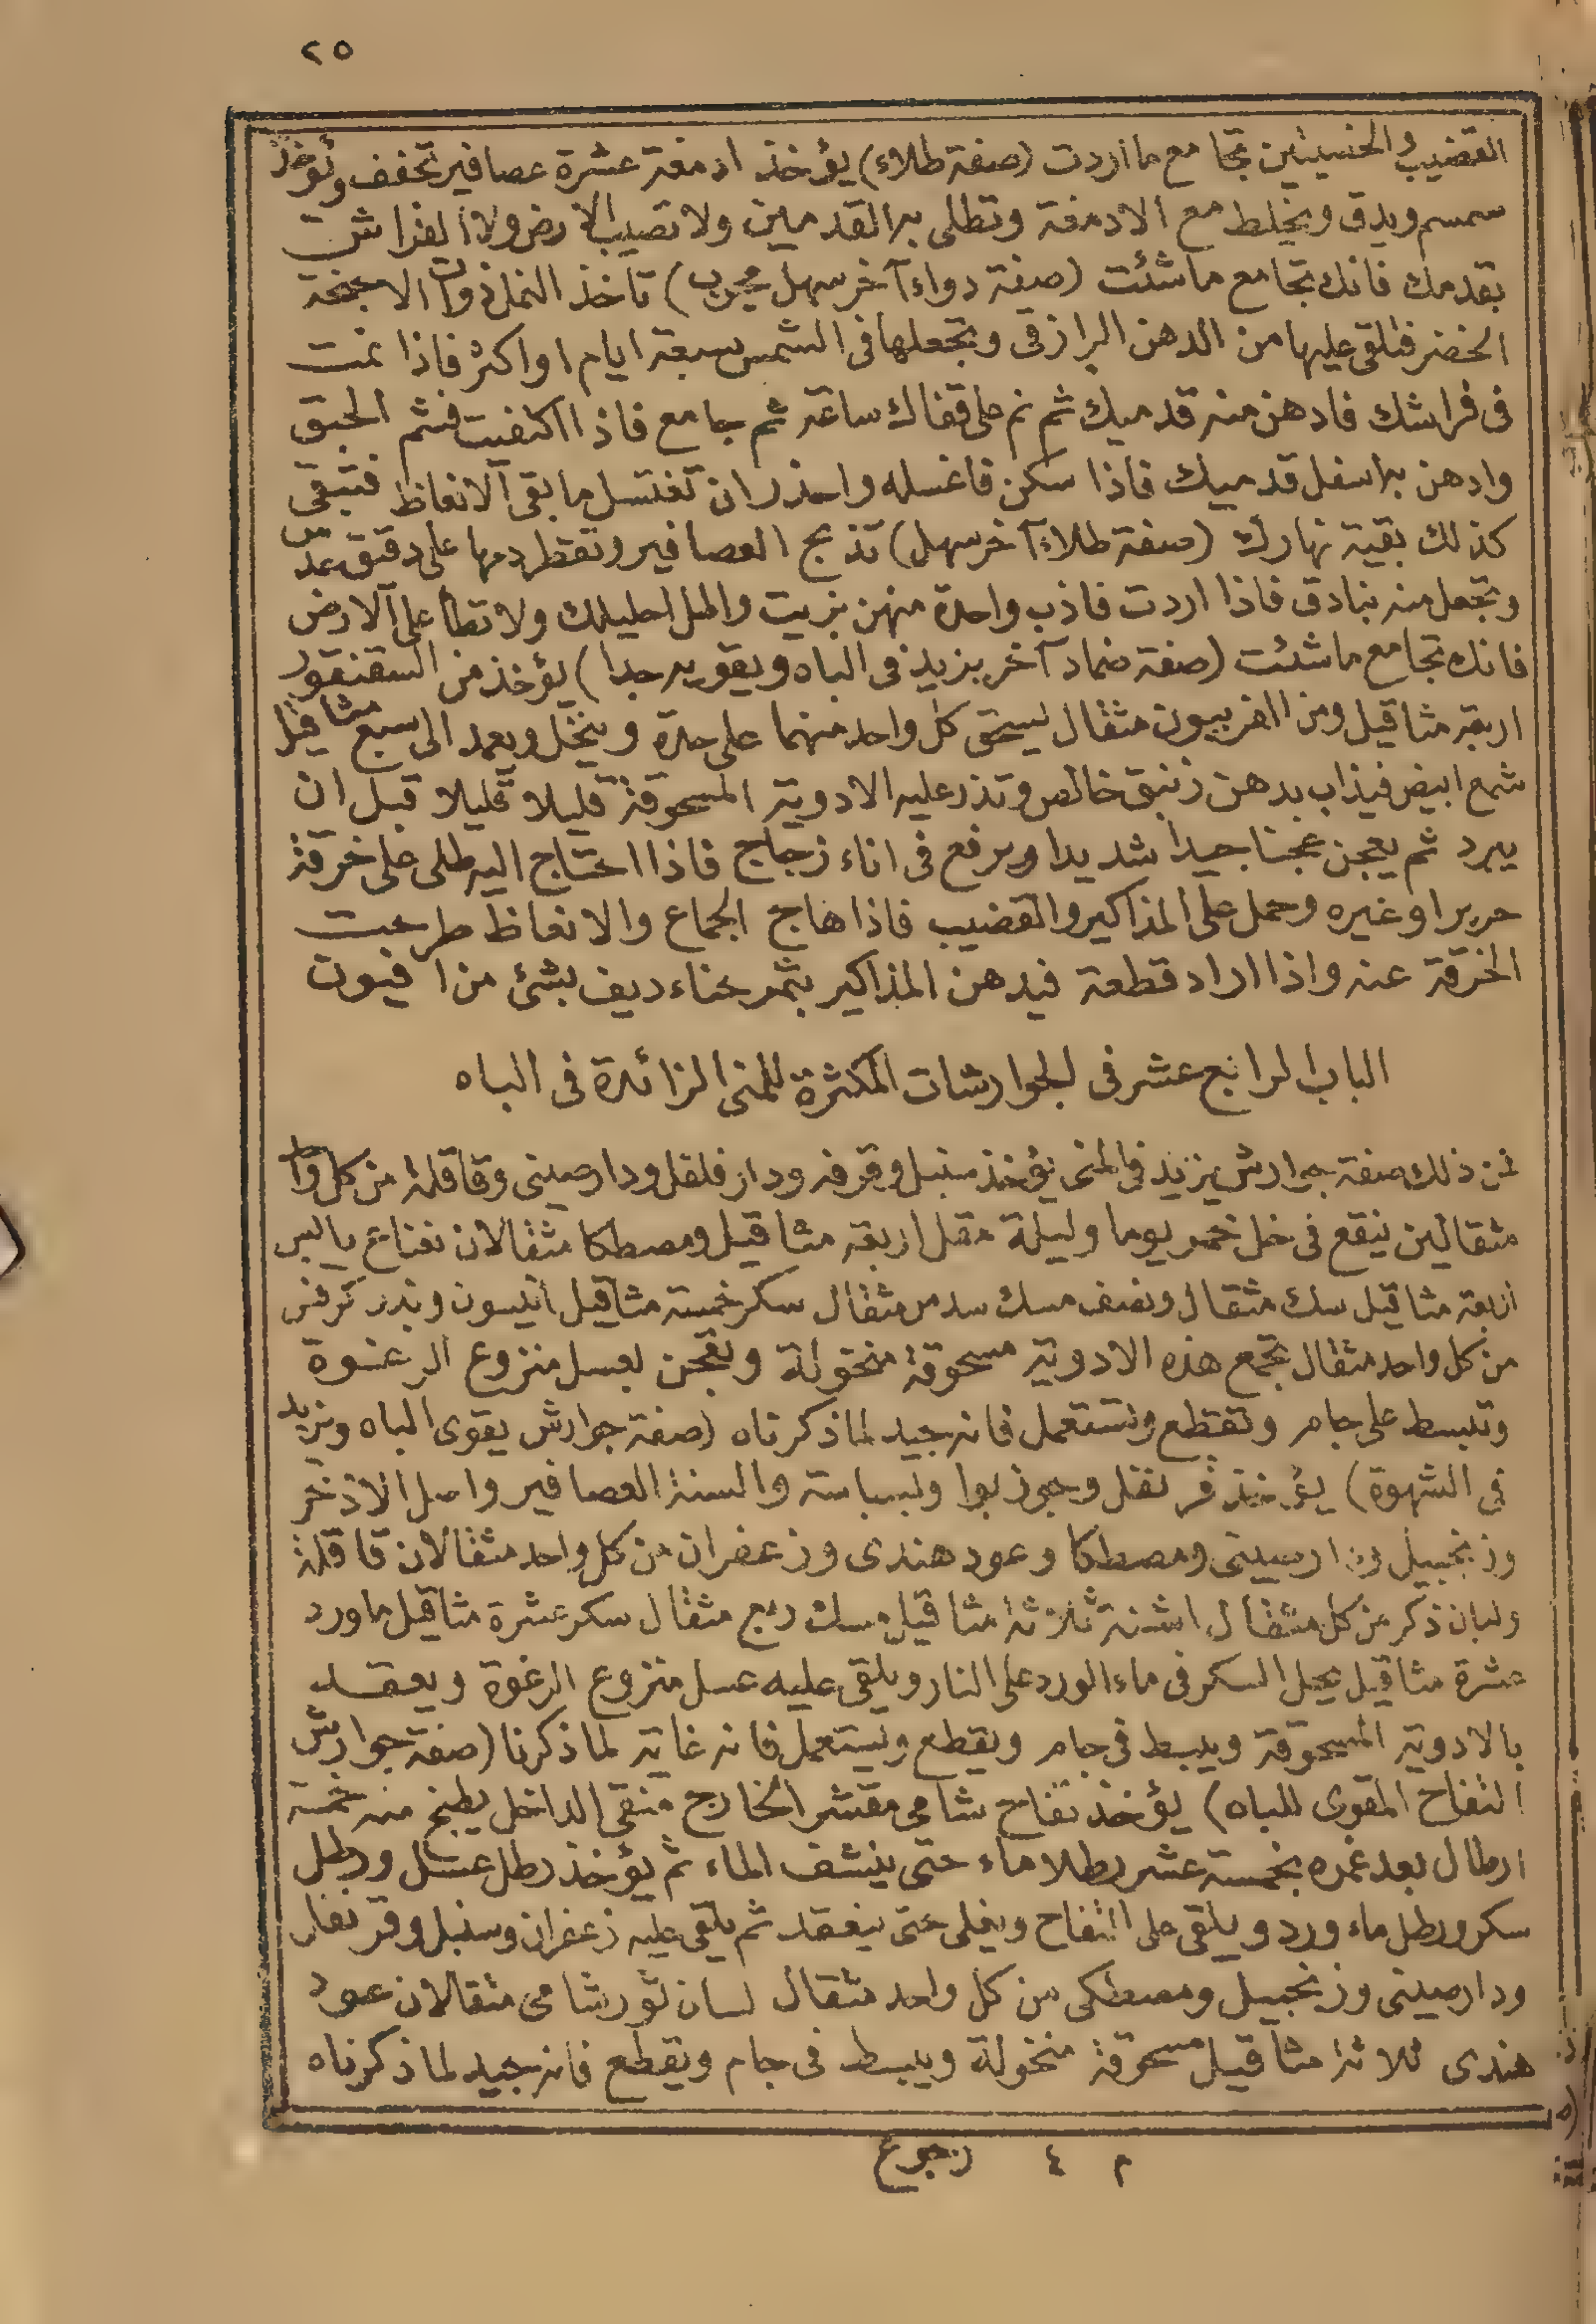 ٢٥
القضيب والخصيتين تجامع ما اردت (صفة طلاء) يؤخذ ادمغة عشرة عصافير تجفف ويؤخذ
سمسم ويدق ويخلط مع الادمغة وتطلى به القدمين ولا تصيب الارض ولا الفراش
بقدمك فانك تجامع ما شئت (صفة دواء آخر سهل مجرب) تأخذ النمل ذوات الاجنحة
الخضر فتلقى عليها من الدهن الرازقى وتجعلها فى الشمس سبعة ايام او اكثر فاذا نمت
فى فراشك فادهن منه قدميك ثم نم على قفاك ساعة ثم جامع فاذا اكتفيت فشم الحبق
وادهن به اسفل قدميك فاذا سكن فاغسله واحذر ان تغتسل ما بقى الانعاظ فتبقى
كذلك بقية نهارك (صفة طلاء آخر سهل) تذبح العصافير وتقطر دمها على دقيق عدس
وتجعل منه بنادق فاذا اردت فاذب واحدة منهن بزيت واطل احليلك ولا تطأ على الارض
فانك تجامع ما شئت (صفة ضماد آخر يزيد فى الباه ويقويه جدا) يؤخذ من السقنقور
اربعة مثاقيل ومن الفربيون مثقال يسحق كل واحد منهما على حدة وينخل ويعمد الى سبع مثاقيل
شمع ابيض فيذاب بدهن زنبق خالص وتذر عليه الادوية المسحوقة قليلا قليلا قبل ان
يبرد ثم يعجن عجنا جيدا شديدا ويرفع فى اناء زجاج فاذا احتاج اليه طلى على خرقة
حرير او غيره وحمل على المذاكير والقضيب فاذا هاج الجماع والانعاظ طرحت
الخرقة عنه واذا اراد قطعة فيدهن المذاكير بتمر حناء ديف بشئ من افيون
الباب الرابع عشر فى الجوارشات المكثرة للمنى الزائدة فى الباه
فمن ذلك صفة جوارش يزيد فى المنى يؤخذ سنبل وقرفه ودار فلفل ودارصينى وقاقلة من كل واحد
مثقالين ينقع فى خل خمر يوما وليلة مقل اربعة مثاقيل ومصطكا مثقالان نعناع يابس
اربعة مثاقيل سك مثقال ونصف مسك سدس مثقال سكر خمسة مثاقيل انيسون وبذر كرفس
من كل واحد مثقال تجمع هذه الادوية مسحوقة منخولة وتعجن بعسل منزوع الرغوة
وتبسط على جام وتقطع وتستعمل فانه جيد لما ذكرناه (صفة جوارش يقوى الباه ويزيد
فى الشهوة) يؤخذ قرنفل وجوز بوا وبسباسة والسنة العصافير واصل الاذخر
وزنجبيل ودارصينى ومصطكا وعود هندى وزعفران من كل واحد مثقالان قاقلة
ولبان ذكر من كل مثقال اشنة ثلاثة مثاقيل مسك ربع مثقال سكر عشرة مثاقيل ماورد
عشرة مثاقيل يحل السكر فى ماء الورد على النار ويلقى عليه عسل منزوع الرغوة ويعقد
بالادوية المسحوقة ويبسط فى جام ويقطع ويستعمل فانه غاية لما ذكرنا (صفة جوارش
التفاح المقوى للباه) يؤخذ تفاح شامى مقشر الخارج منقى الداخل يطبخ منه خمسة
ارطال بعد غمره بخمسة عشر رطلا ماء حتى ينشف الماء ثم يؤخذ رطل عسل ورطل
سكر ورطل ماء ورد ويلقى على التفاح ويغلى حتى ينعقد ثم يلقى عليه زعفران وسنبل وقرنفل
ودارصينى وزنجبيل ومصطكى من كل واحد مثقال لسان ثور شامى مثقالان عود
هندى ثلاثة مثاقيل مسحوقة منخولة ويبسط فى جام ويقطع فانه جيد لما ذكرناه
م ٤ رجوع